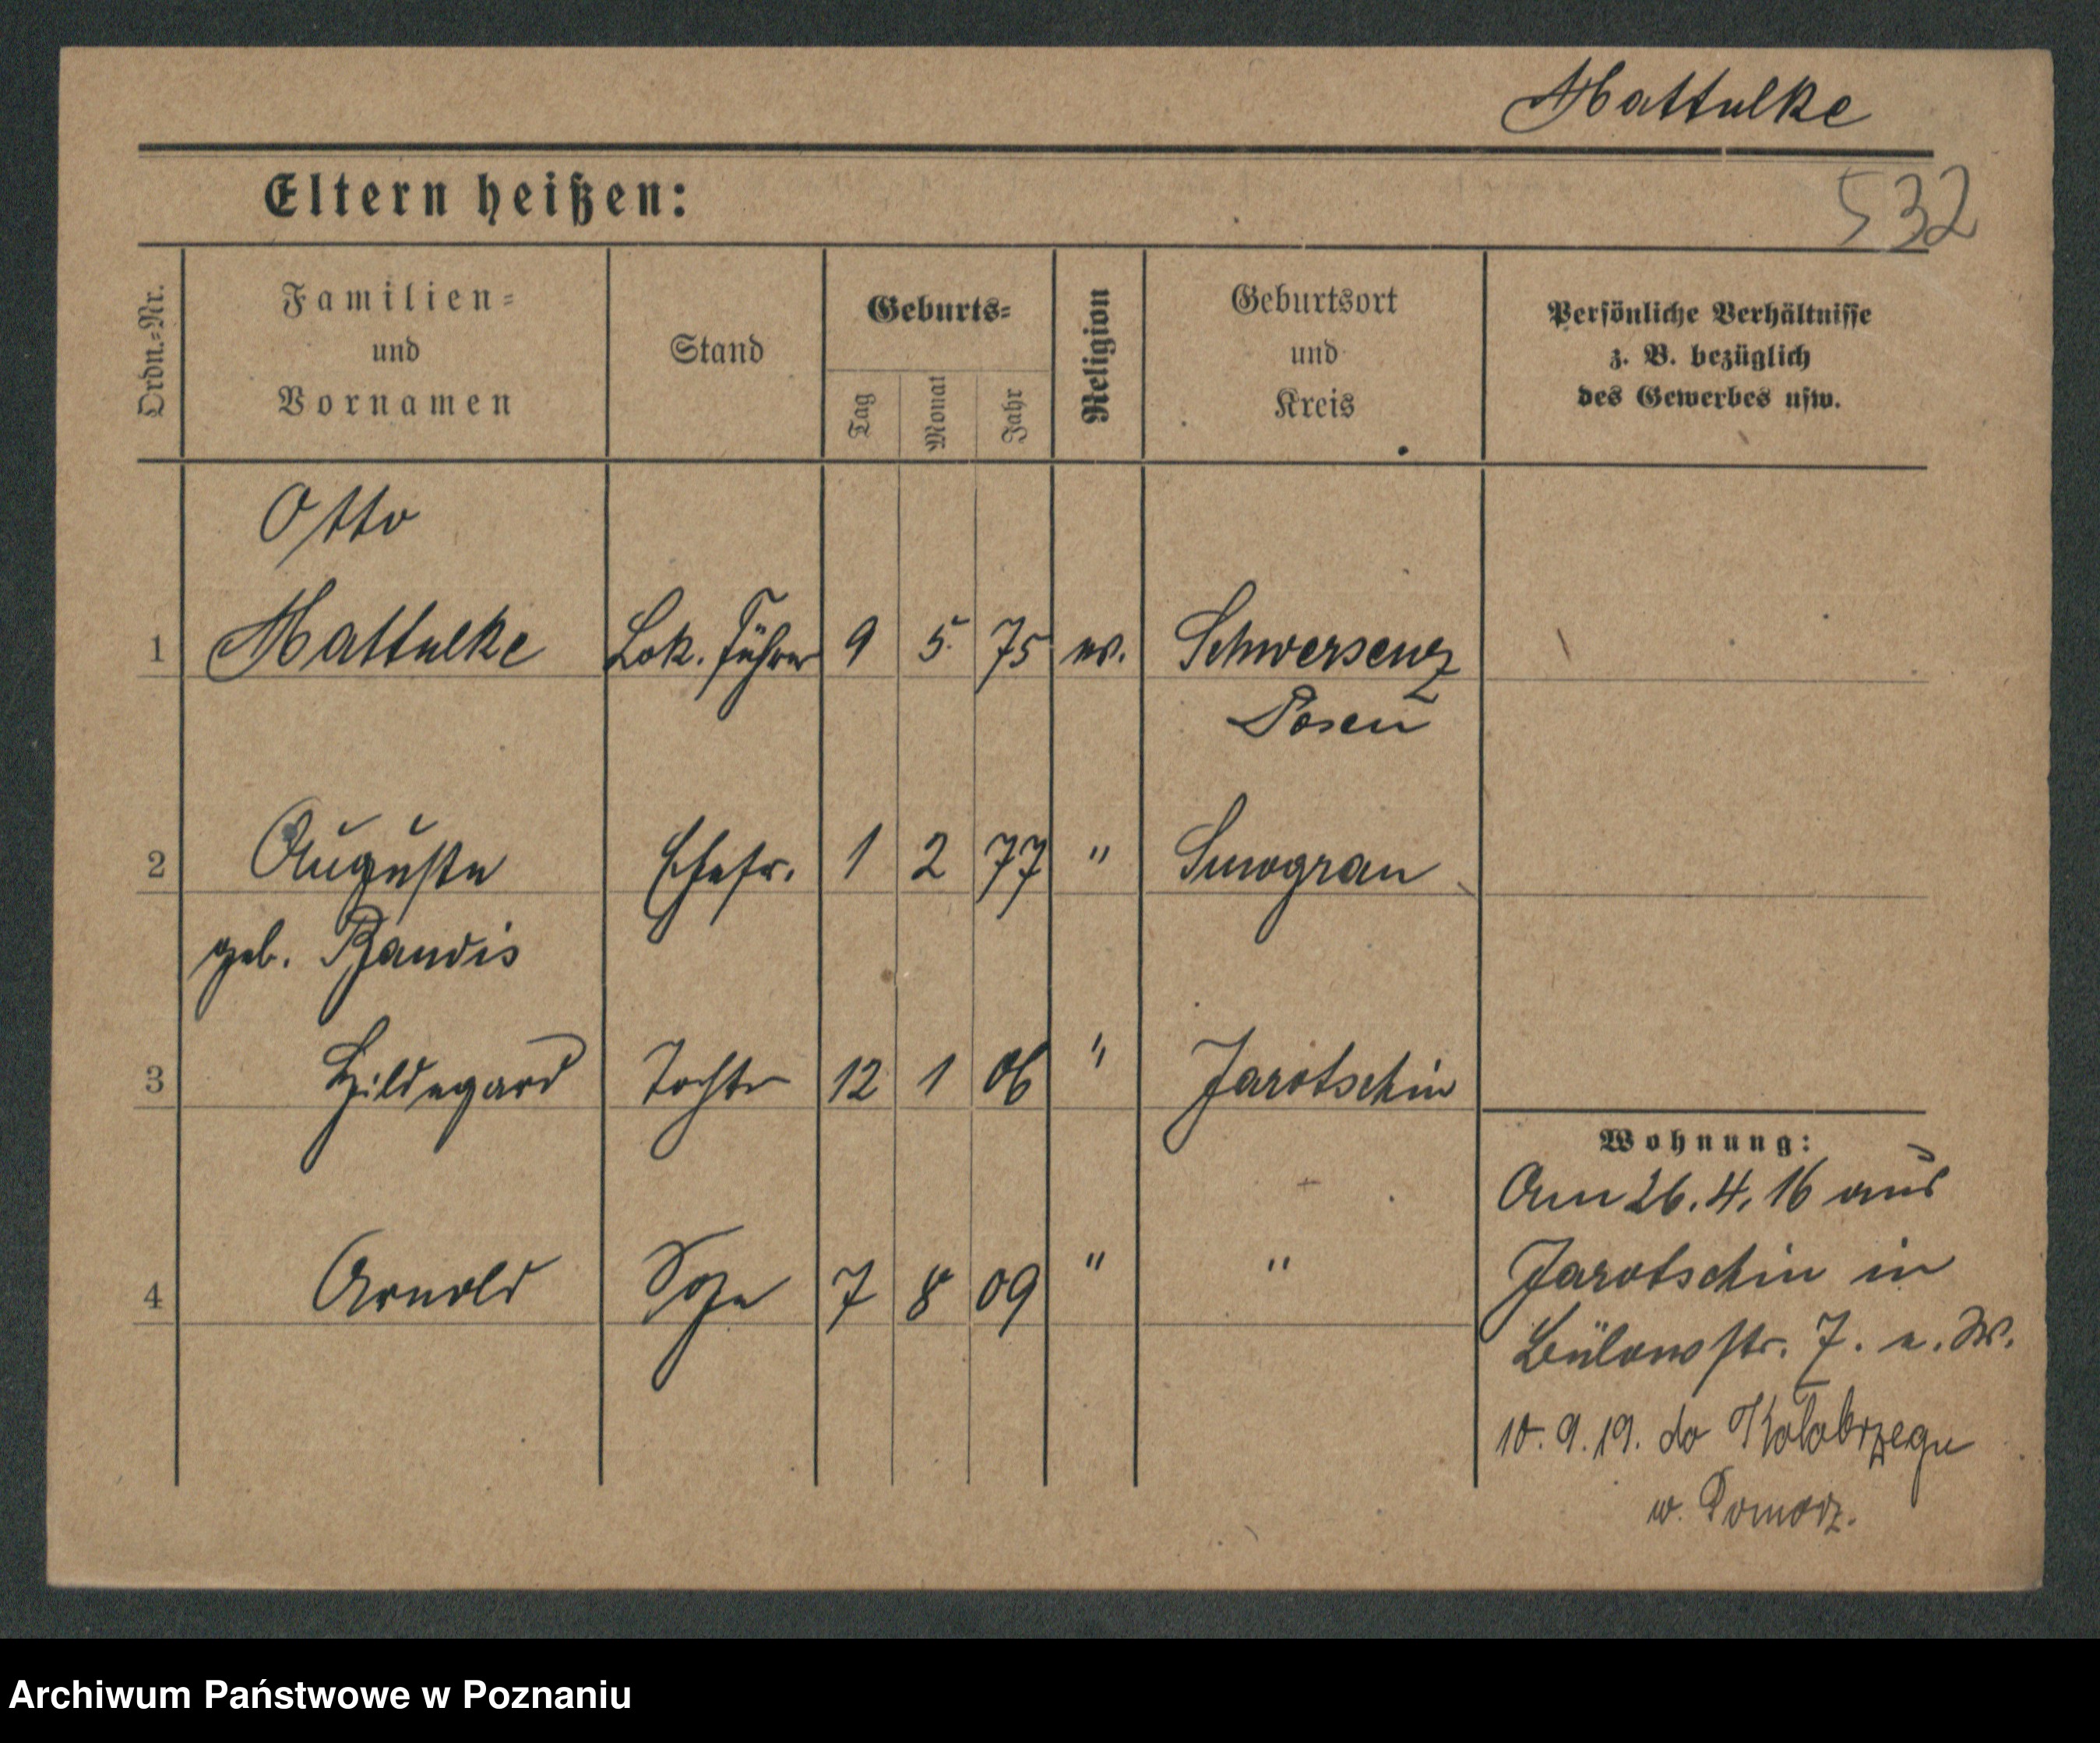 Mattulke
532
Eltern heißen:
Ordn.-Nr.
Familien-
und
Vornamen
Stand
Geburts-
Tag
Monat
Jahr
Religion
Geburtsort
und
Kreis
Persönliche Verhältnisse
z. B. bezüglich
des Gewerbes usw.
Otto
1 Mattulke Lok. Führer 9 5. 75 ev. Schwersenz
Posen
2 Auguste Ehefr. 1 2 77 "
geb.
3 Hildegard Tochter 12 1 06 " Jarotschin
4 Arnold Sohn 7 8 09 " "
Wohnung:
Am 26. 4. 16 aus
Jarotschin in
Bülowstr. 7.
10. 9. 19. do Kołobrzegu
w. Pomorz.
Archiwum Państwowe w Poznaniu